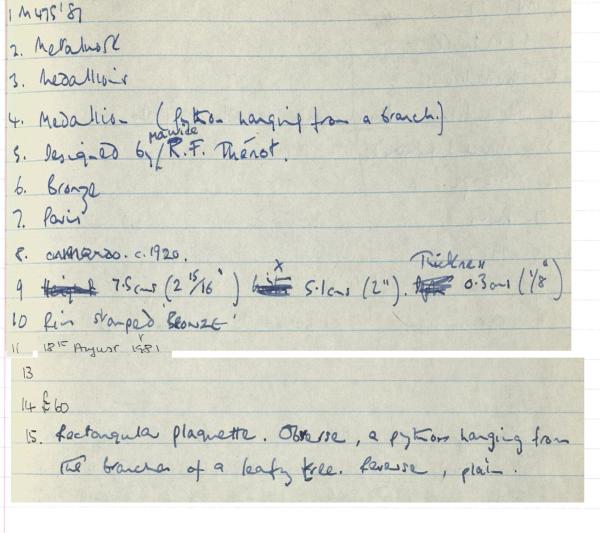 1 M475'81
2. Metalwork
3. Medallions
4. Medallion (Python hanging from a branch.)
5. Designed by / R.F. Thénot.
6. Bronze
7. Paris
8. c.1920.
Thickness
9 7.5cms (2 15/16") x 5.1cms (2"). 0.3cms (1/8")
10 Rim stamped 'BRONZE'
11 18th August 1981
13
14 £60
15. Rectangular plaquette. Obverse, a python hanging from
the branches of a leafy tree. Reverse, plain.